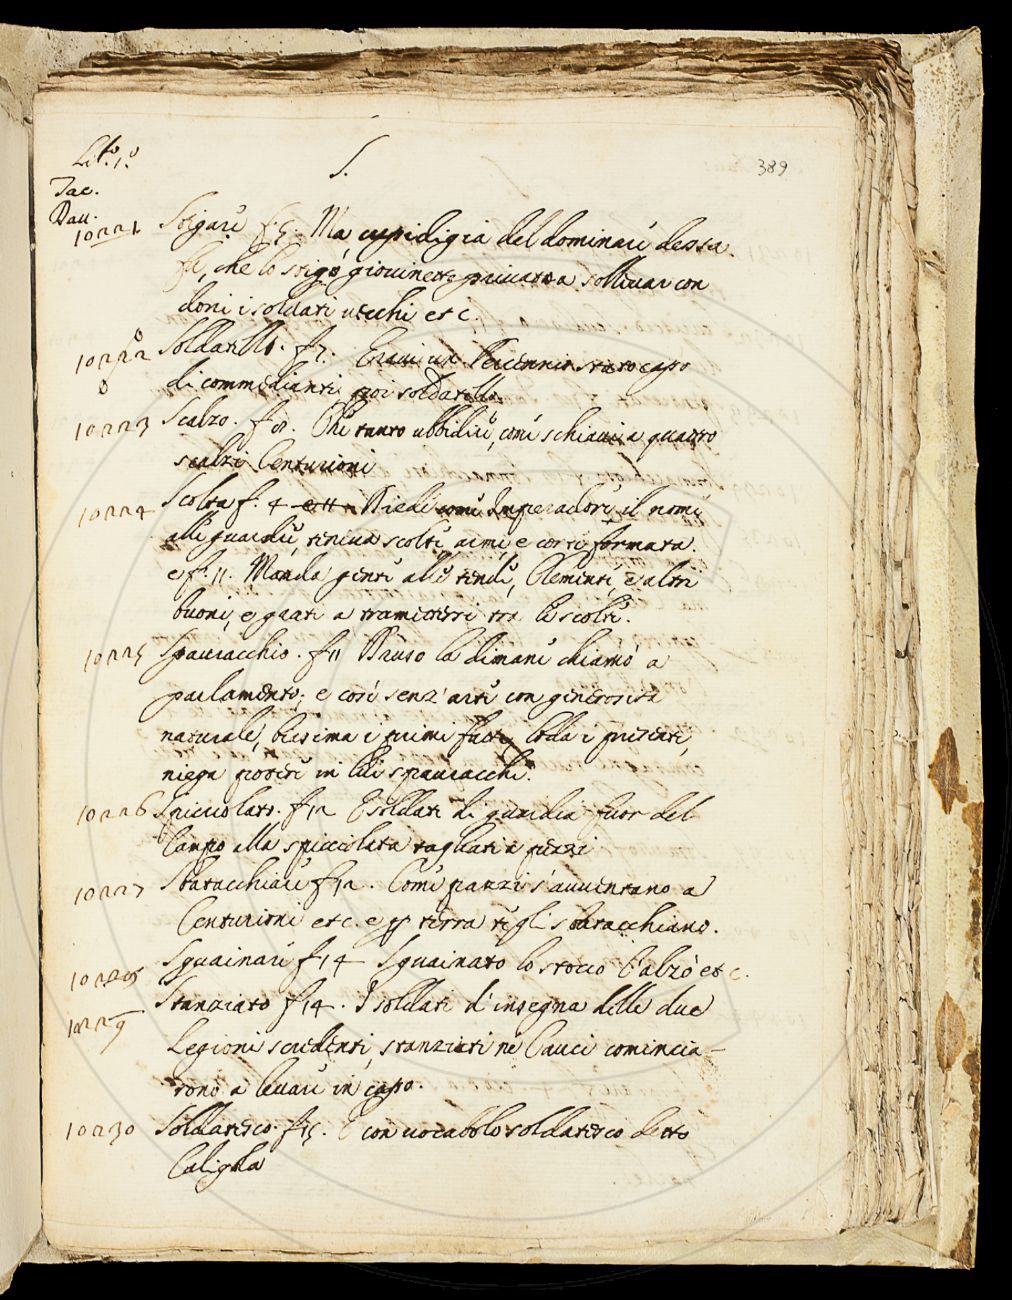 S.
389
Lib.º 1.º
Tac.
Dav.
10221 Stigare f. 5. Ma cupidigia del dominare dessa
fu, che lo stigò giovinetto privato a sollevar con
doni i soldati vecchi etc.
10222 Soldatello. f. 7. Eravi un Percennio stato capo
di commedianti poi soldatello
10223 Scalzo. f. 8. Che tanto ubbidire, come schiavi a quattro
scalzi Centurioni
10224 Scolta f. 4 e 11 Diede come Imperadore il nome
alle guardie, teneva scolte armi, e corte formata.
e f. 11. Manda gente alle tende, Clemente, e altri
buoni, e grati a tramettersi tra le scolte.
10225 Spauracchio. f. 11 Druso la dimane chiamò a
parlamento; e così senz'arte con generosità
naturale, biasima i primi fatti, loda i presenti,
niega potere in lui spauracchi.
10226 Spicciolato. f. 12 E soldati di guardia fuor del
Campo alla spicciolata tagliati a pezzi
10227 Stracchiare f. 12. Come pazzi s'avventano a
Centurioni etc. e p terra te gli stracchiano.
10228 Sguainare f. 14 Sguainato lo stocco l'alzò etc.
10229 Stanziato f. 14. I soldati d'insegna delle due
Legioni scredenti, stanziati ne Cauci comincia-
rono a levare in capo.
10230 Soldatesco. f. 15. E con vocabolo soldatesco detto
Caligola